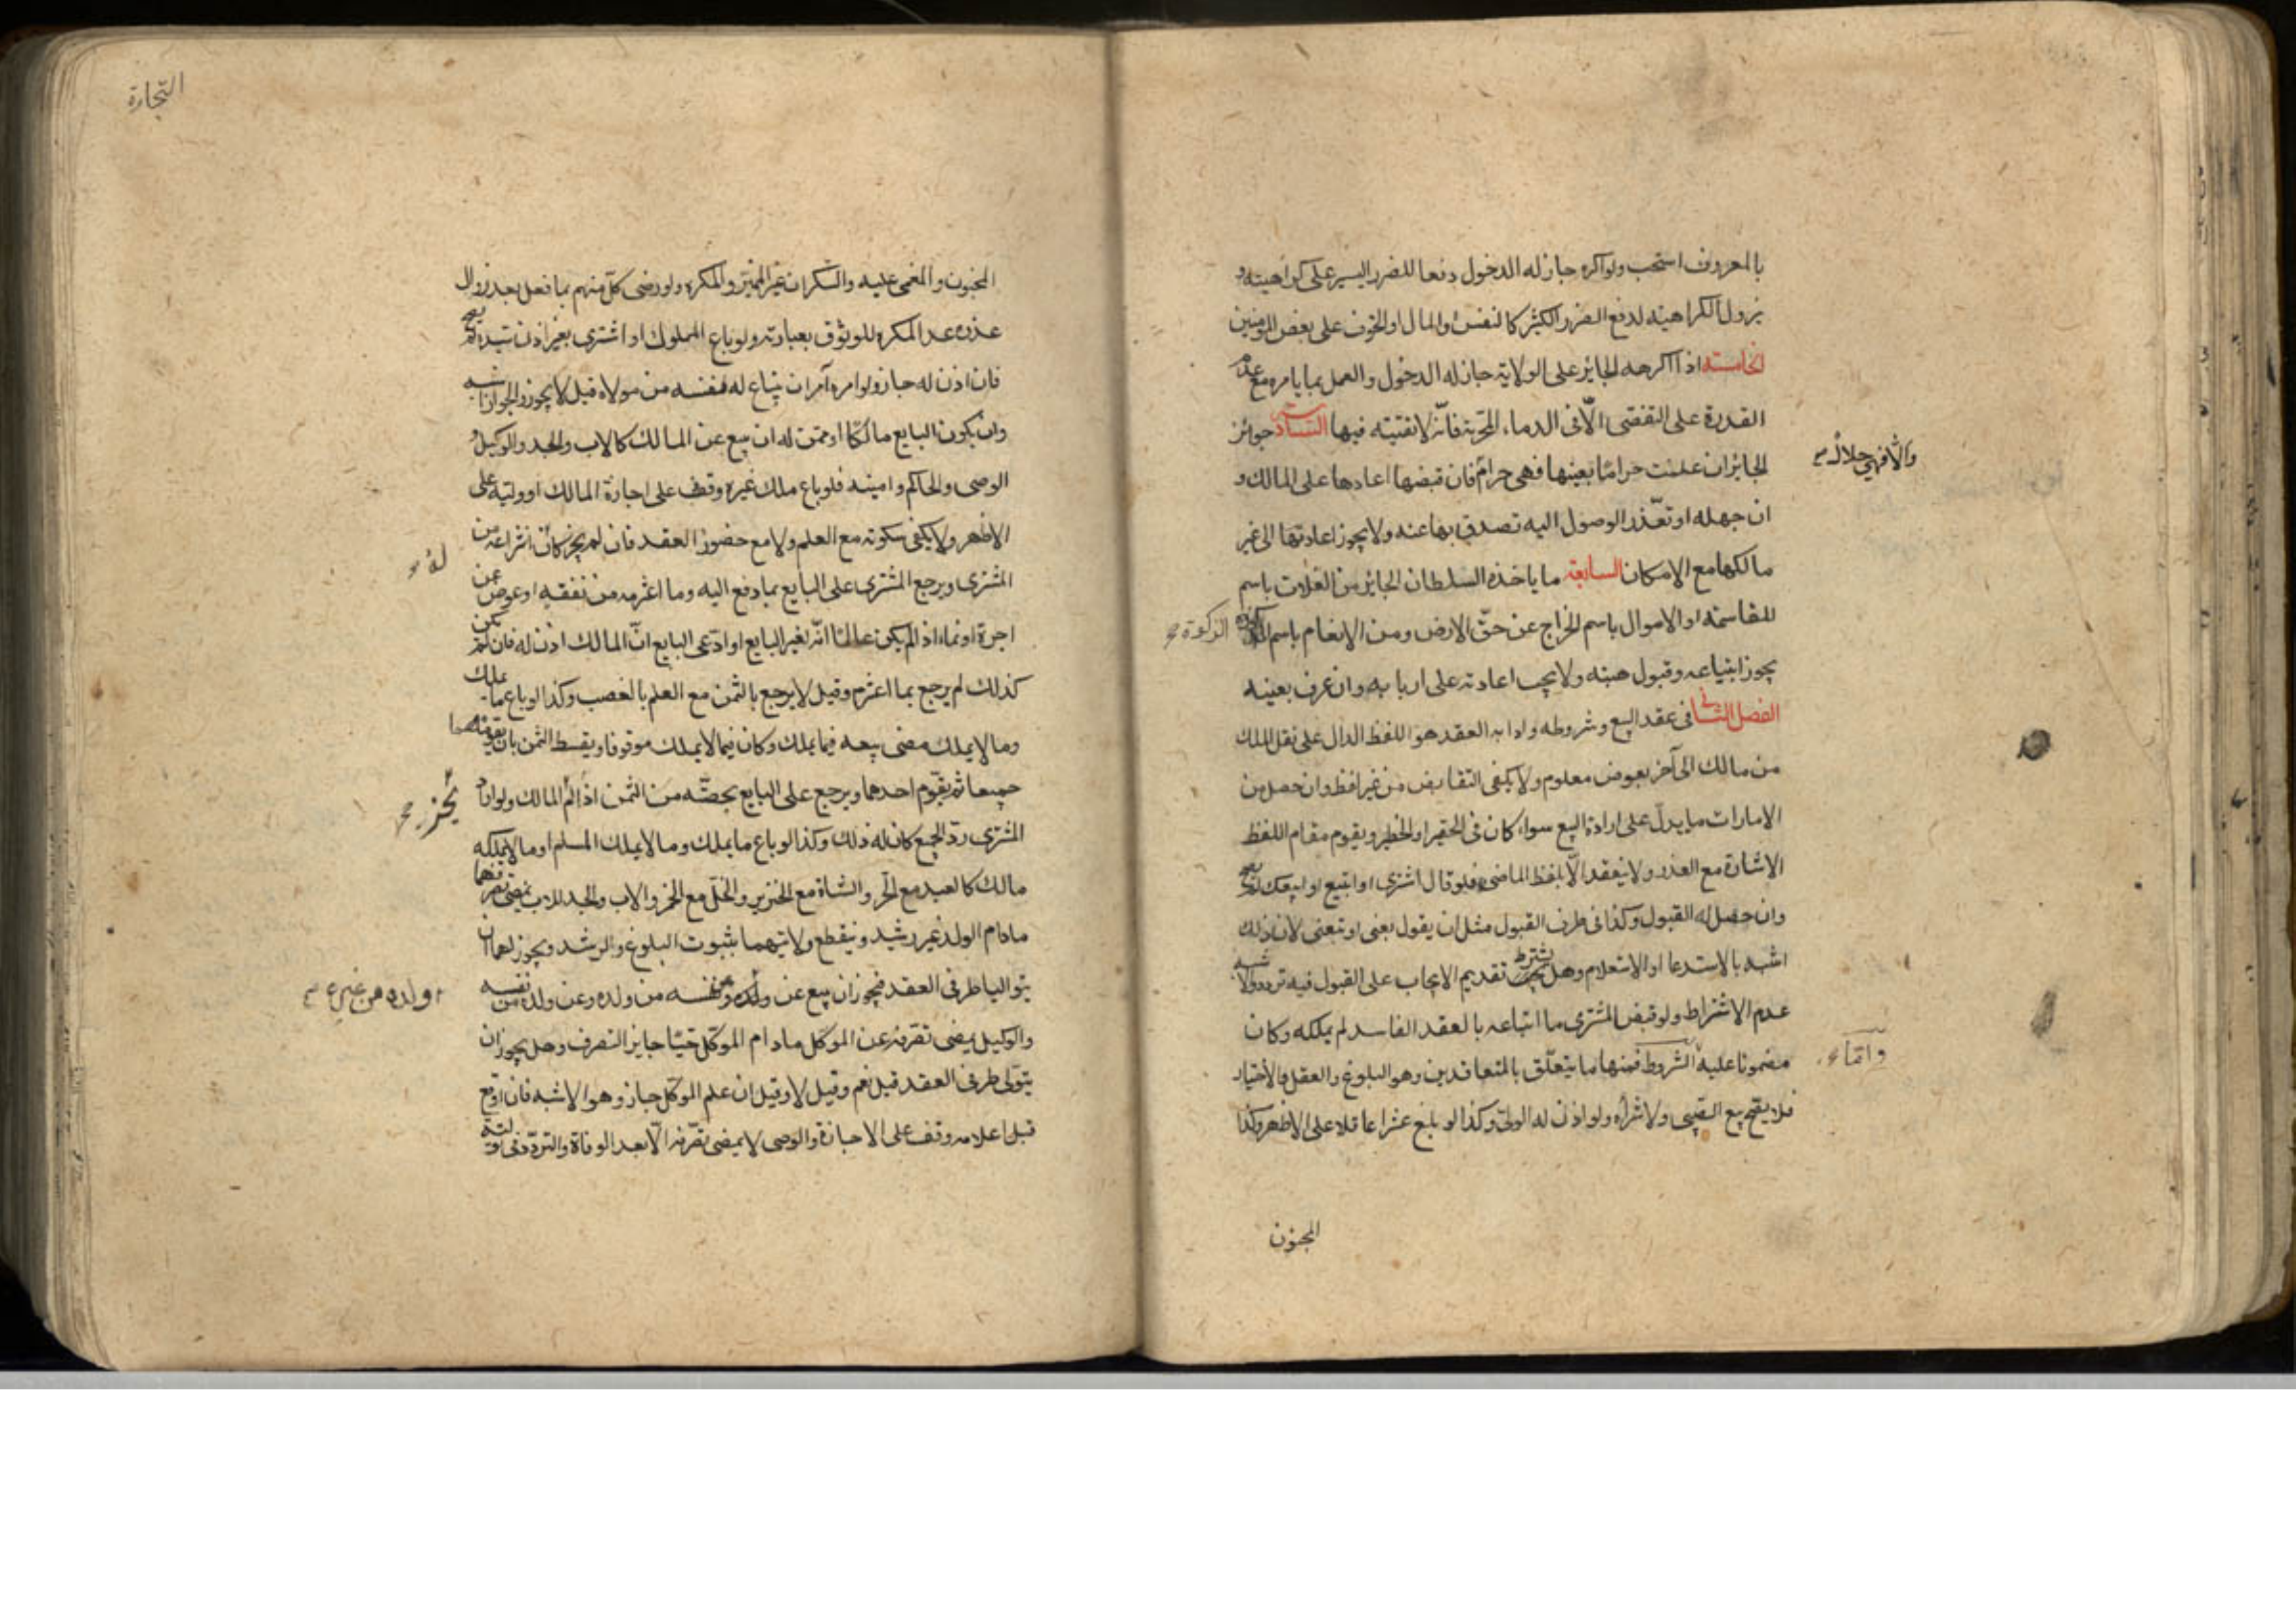 بالمعروف استحب ولو اكره جاز له الدخول دفعا للضرر اليسير على كراهيته و
يزول الكراهية لدفع الضرر الكثير كالنفس والمال او الخوف على بعض المومنين
الخامسة اذا اكرهه الجائر على الولاية جاز له الدخول والعمل بما يامره مع عدم
القدرة على التفصي الّا فى الدماء المحرّمة فانّه لا تقيّة فيها السادسة جوائز
الجائر ان علمت حراما بعينها فهى حرام فان قبضها اعادها على المالك و
والّا فهى حلال
ان جهله او تعذّر الوصول اليه تصدق بها عنه ولا يجوز اعادتها الى غير
مالكها مع الامكان السابعة ما ياخذه السلطان الجائر من الغلات باسم
المقاسمة او الاموال باسم الخراج عن حقّ الارض ومن الانعام باسم
الزكوة
يجوز ابتياعه وقبول هبته ولا يجب اعادته على اربابه وان عرف بعينه
الفصل الثانى فى عقد البيع وشروطه وادابه العقد هو اللفظ الدال على نقل الملك
من مالك الى آخر بعوض معلوم ولا يكفى التقابض من غير لفظ وان حصل من
الامارات ما يدلّ على ارادة البيع سواء كان فى الحقير او الخطير ويقوم مقام اللفظ
الاشارة مع العذر ولا ينعقد الّا بلفظ الماضى فلو قال اشترى او ابتيع او ابيعك لم يصح
وان حصل له القبول وكذا فى طرف القبول مثل ان يقول بعنى او تبيعنى لان ذلك
اشبه بالاستدعا او الاستعلام وهل يشترط تقديم الايجاب على القبول فيه تردد والاشبه
عدم الاشتراط ولو قبض المشترى ما ابتاعه بالعقد الفاسد لم يملكه وكان
مضمونا عليه الشروط فمنها ما يتعلّق بالمتعاقدين وهو البلوغ والعقل والاختيار
وامّا
فلا يصح بيع الصبى ولا شراؤه ولو اذن له الولىّ وكذا لو بلغ عشرا عاقلا على الاظهر وكذا
المجنون
التجارة
المجنون والمغمى عليه والسكران غير المميّز والمكره ولو رضى كلّ منهم بما فعل بعد زوال
عذره عدا المكره للوثوق بعبارته ولو باع المملوك او اشترى بغير اذن سيده لم يصح
فان اذن له جاز ولو امره آمر ان يبتاع له نفسه من مولاه قيل لا يجوز والجواز اشبه
وان يكون البايع مالكا او ممّن له ان يبيع عن المالك كالاب والجد والوكيل و
الوصى والحاكم وامينه فلو باع ملك غيره وقف على اجازة المالك او وليّه على
الاظهر ولا يكفى سكوته مع العلم ولا مع حضور العقد فان لم يجز كان انتزاعه من
له
المشترى ويرجع المشترى على البايع بما دفع اليه وما اغترمه من نفقه او عوض عن
اجرة او نماء اذا لم يكن عالما انّه لغير البايع او ادّعى البايع انّ المالك اذن له فان لم يكن
كذلك لم يرجع بما اغترم وقيل لا يرجع بالثمن مع العلم بالغصب وكذا لو باع ما يملك
وما لا يملك مضى بيعه فيما يملك وكان فيما لا يملك موقوفا ويقسط الثمن بان يقوّمهما
جميعا ثم يقوّم احدهما ويرجع على البايع بحصّته من الثمن اذا لم المالك ولو اراد
يجز
المشترى ردّ الجميع كان له ذلك وكذا لو باع ما يملك وما لا يملك المسلم او ما لا يملكه
مالك كالعبد مع الحّر والشاة مع الخنزير والخلّ مع الخمر والاب والجد للاب يمضى تصرّفهما
مادام الولد غير رشيد وينقطع ولايتهما بثبوت البلوغ والرشد ويجوز لهما ان
يتوليا طرفى العقد فيجوز ان يبيع عن ولده من نفسه من ولده وعن ولده من نفسه
او ولده من غيره
والوكيل يمضى تصرّفه عن الموكّل مادام الموكّل حيّا جايز التصرف وهل يجوز ان
يتولّى طرفى العقد قيل نعم وقيل لا وقيل ان علم الموكّل جاز وهو الاشبه فان اوقع
قبل اعلامه وقف على الاجازة والوصى لا يمضى تصرّفه الّا بعد الوفاة والتردّد فى توليته